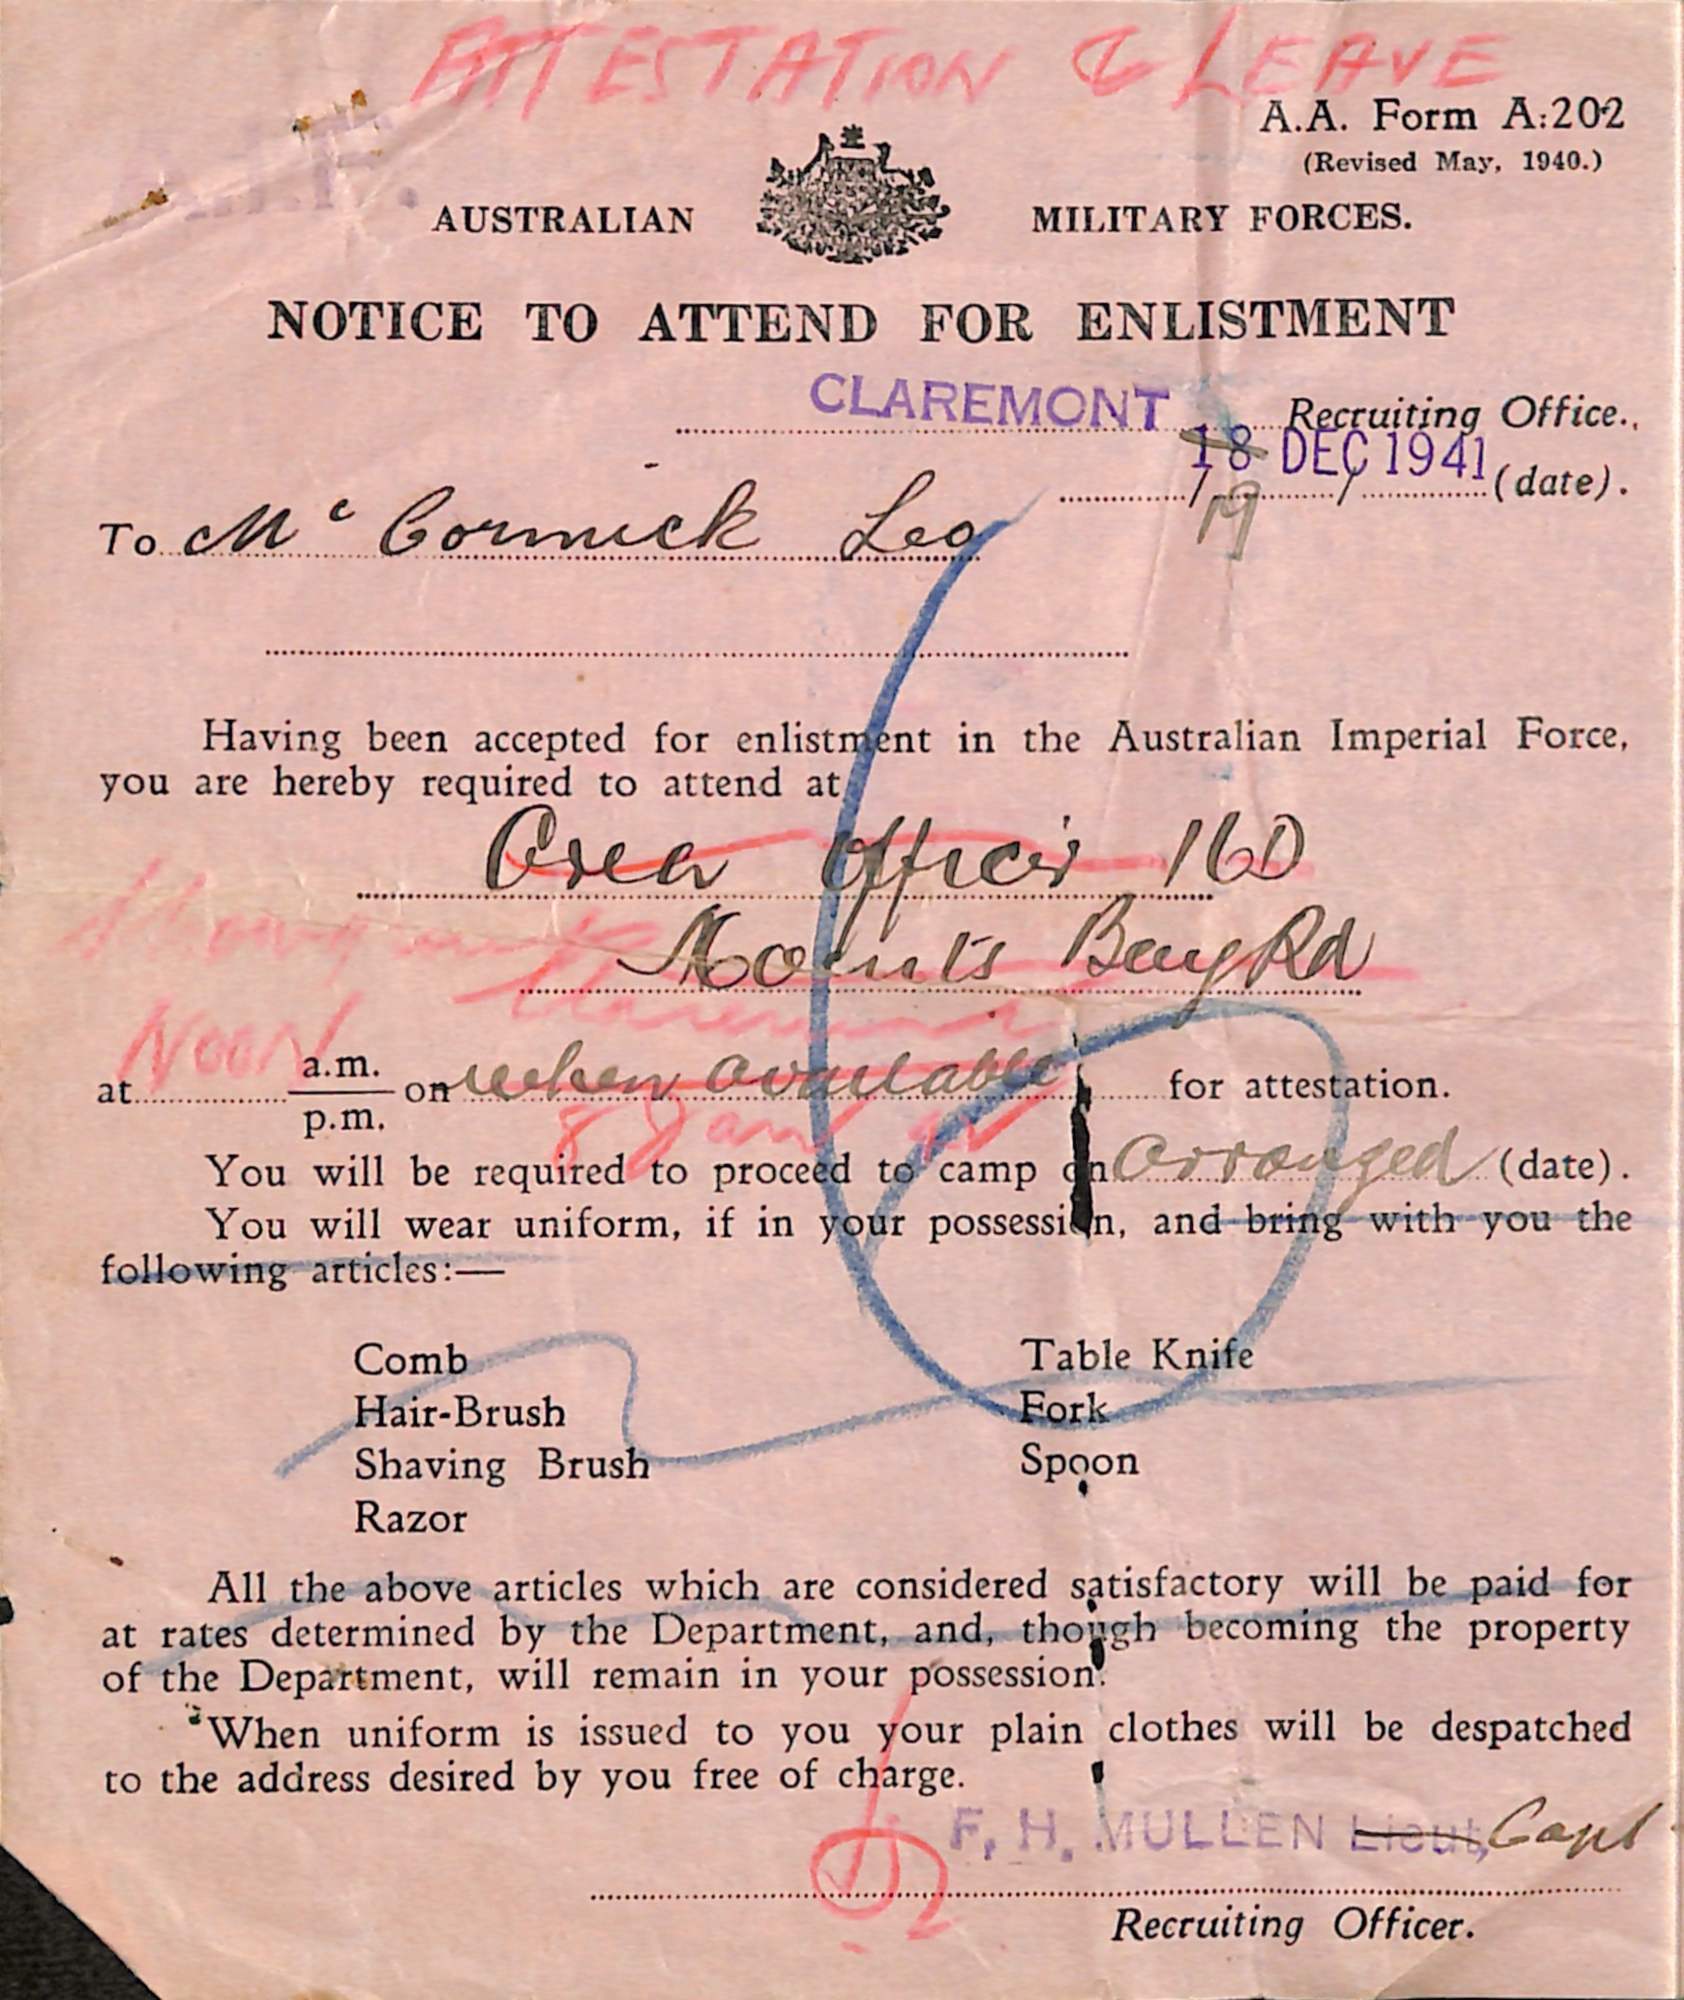 ATTESTATION & LEAVE
A.A. Form A:202
(Revised May, 1940.)
A.I.F.
AUSTRALIAN MILITARY FORCES.
NOTICE TO ATTEND FOR ENLISTMENT
CLAREMONT Recruiting Office.,
18 DEC 1941 (date).
19
To McCormick Leo
Having been accepted for enlistment in the Australian Imperial Force,
you are hereby required to attend at
Area Officer 16D
Mounts Bay Rd
Claremont
at NOON a.m. p.m. on when available for attestation.
8 Jan 42
You will be required to proceed to camp on arranged (date).
You will wear uniform, if in your possession, and bring with you the
following articles:—
Comb Table Knife
Hair-Brush Fork
Shaving Brush Spoon
Razor
All the above articles which are considered satisfactory will be paid for
at rates determined by the Department, and, though becoming the property
of the Department, will remain in your possession.
When uniform is issued to you your plain clothes will be despatched
to the address desired by you free of charge.
F. H. MULLEN Lieut, Capt
Recruiting Officer.